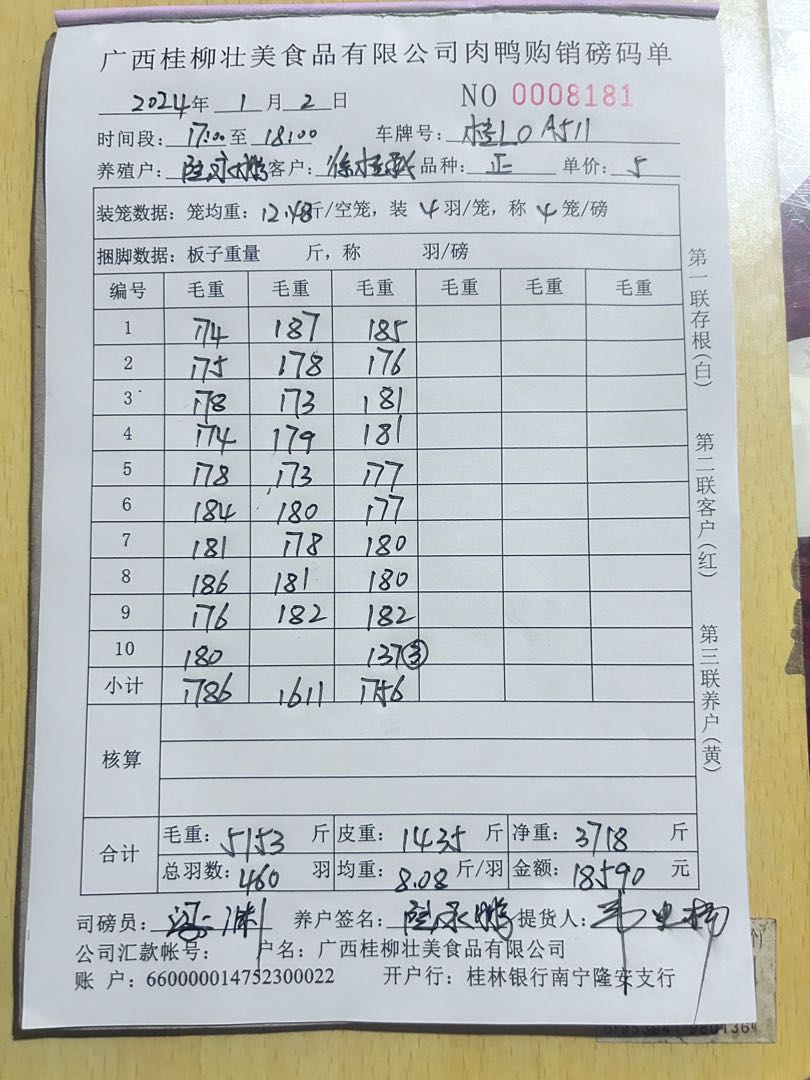 广西桂柳壮美食品有限公司肉鸭购销磅码单
2024年 1 月 2 日 NO 0008181
时间段: 17:00 至 18:00 车牌号: 桂L0A511
养殖户: 陆永鹏 客户: 徐桂 品种: 正 单价: 5
装笼数据: 笼均重: 12.48斤/空笼, 装 4 羽/笼, 称 4 笼/磅
捆脚数据: 板子重量 斤, 称 羽/磅
编号 毛重 毛重 毛重 毛重 毛重 毛重
1 174 187 185
2 175 178 176
3 178 173 181
4 174 179 181
5 178 173 177
6 184 180 177
7 181 178 180
8 186 181 180
9 176 182 182
10 180 137③
小计 1786 1611 1756
核算
合计 毛重: 5153 斤 皮重: 1435 斤 净重: 3718 斤
总羽数: 460 羽 均重: 8.08 斤/羽 金额: 18590 元
司磅员: 养户签名: 陆永鹏 提货人:
公司汇款帐号: 户名: 广西桂柳壮美食品有限公司
账 户: 660000014752300022 开户行: 桂林银行南宁隆安支行
第一联存根(白)
第二联客户(红)
第三联养户(黄)